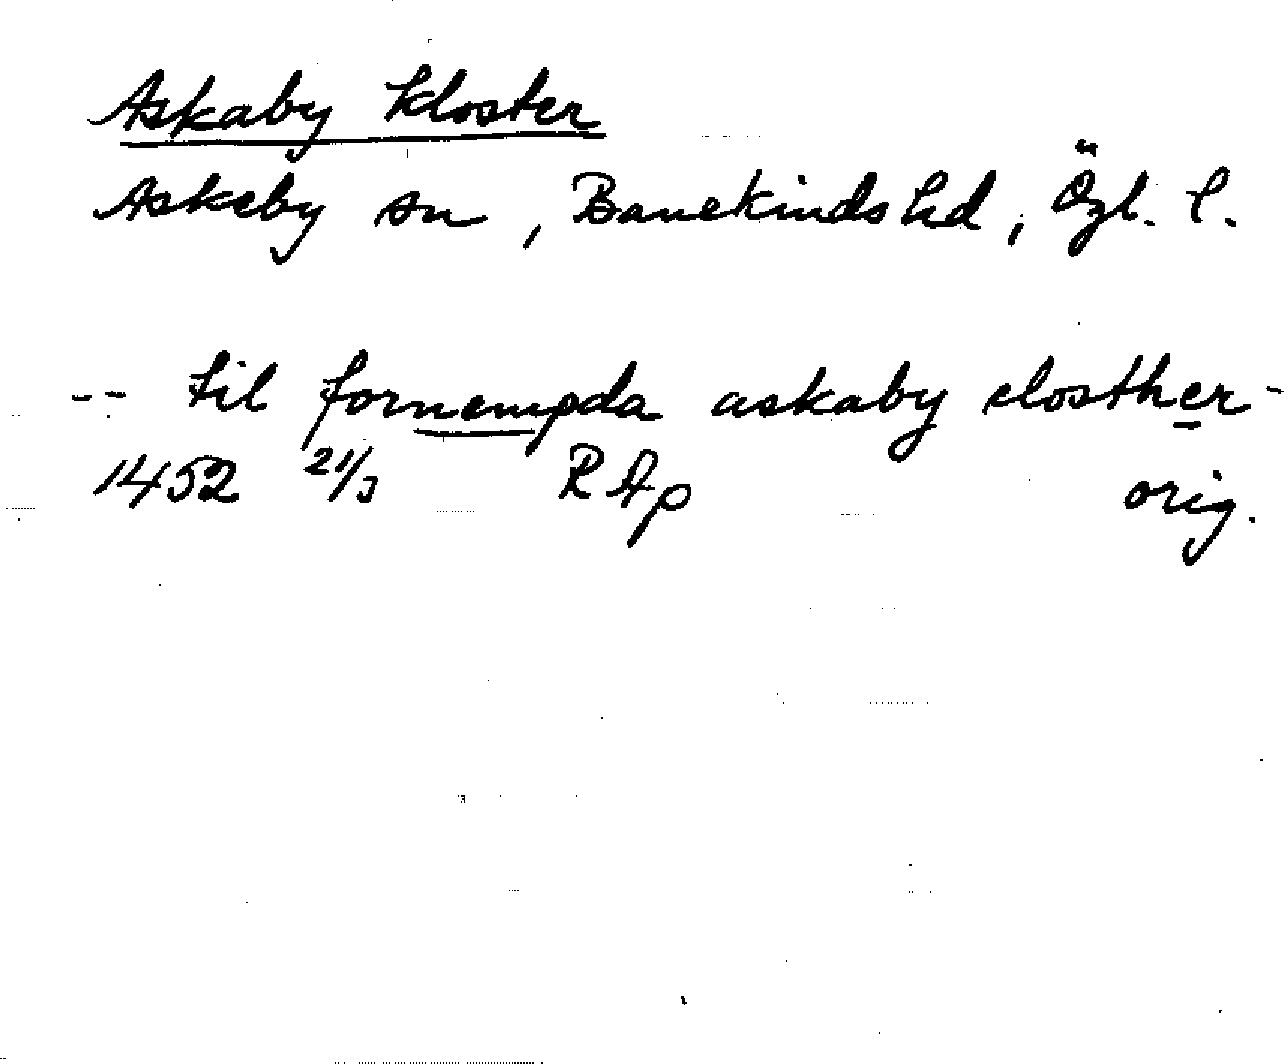 Askaby kloster
Askeby sn, Banekinds hd, Ögl. l.
-- til fornempda askaby closther -
1452 21/3 RAp orig.